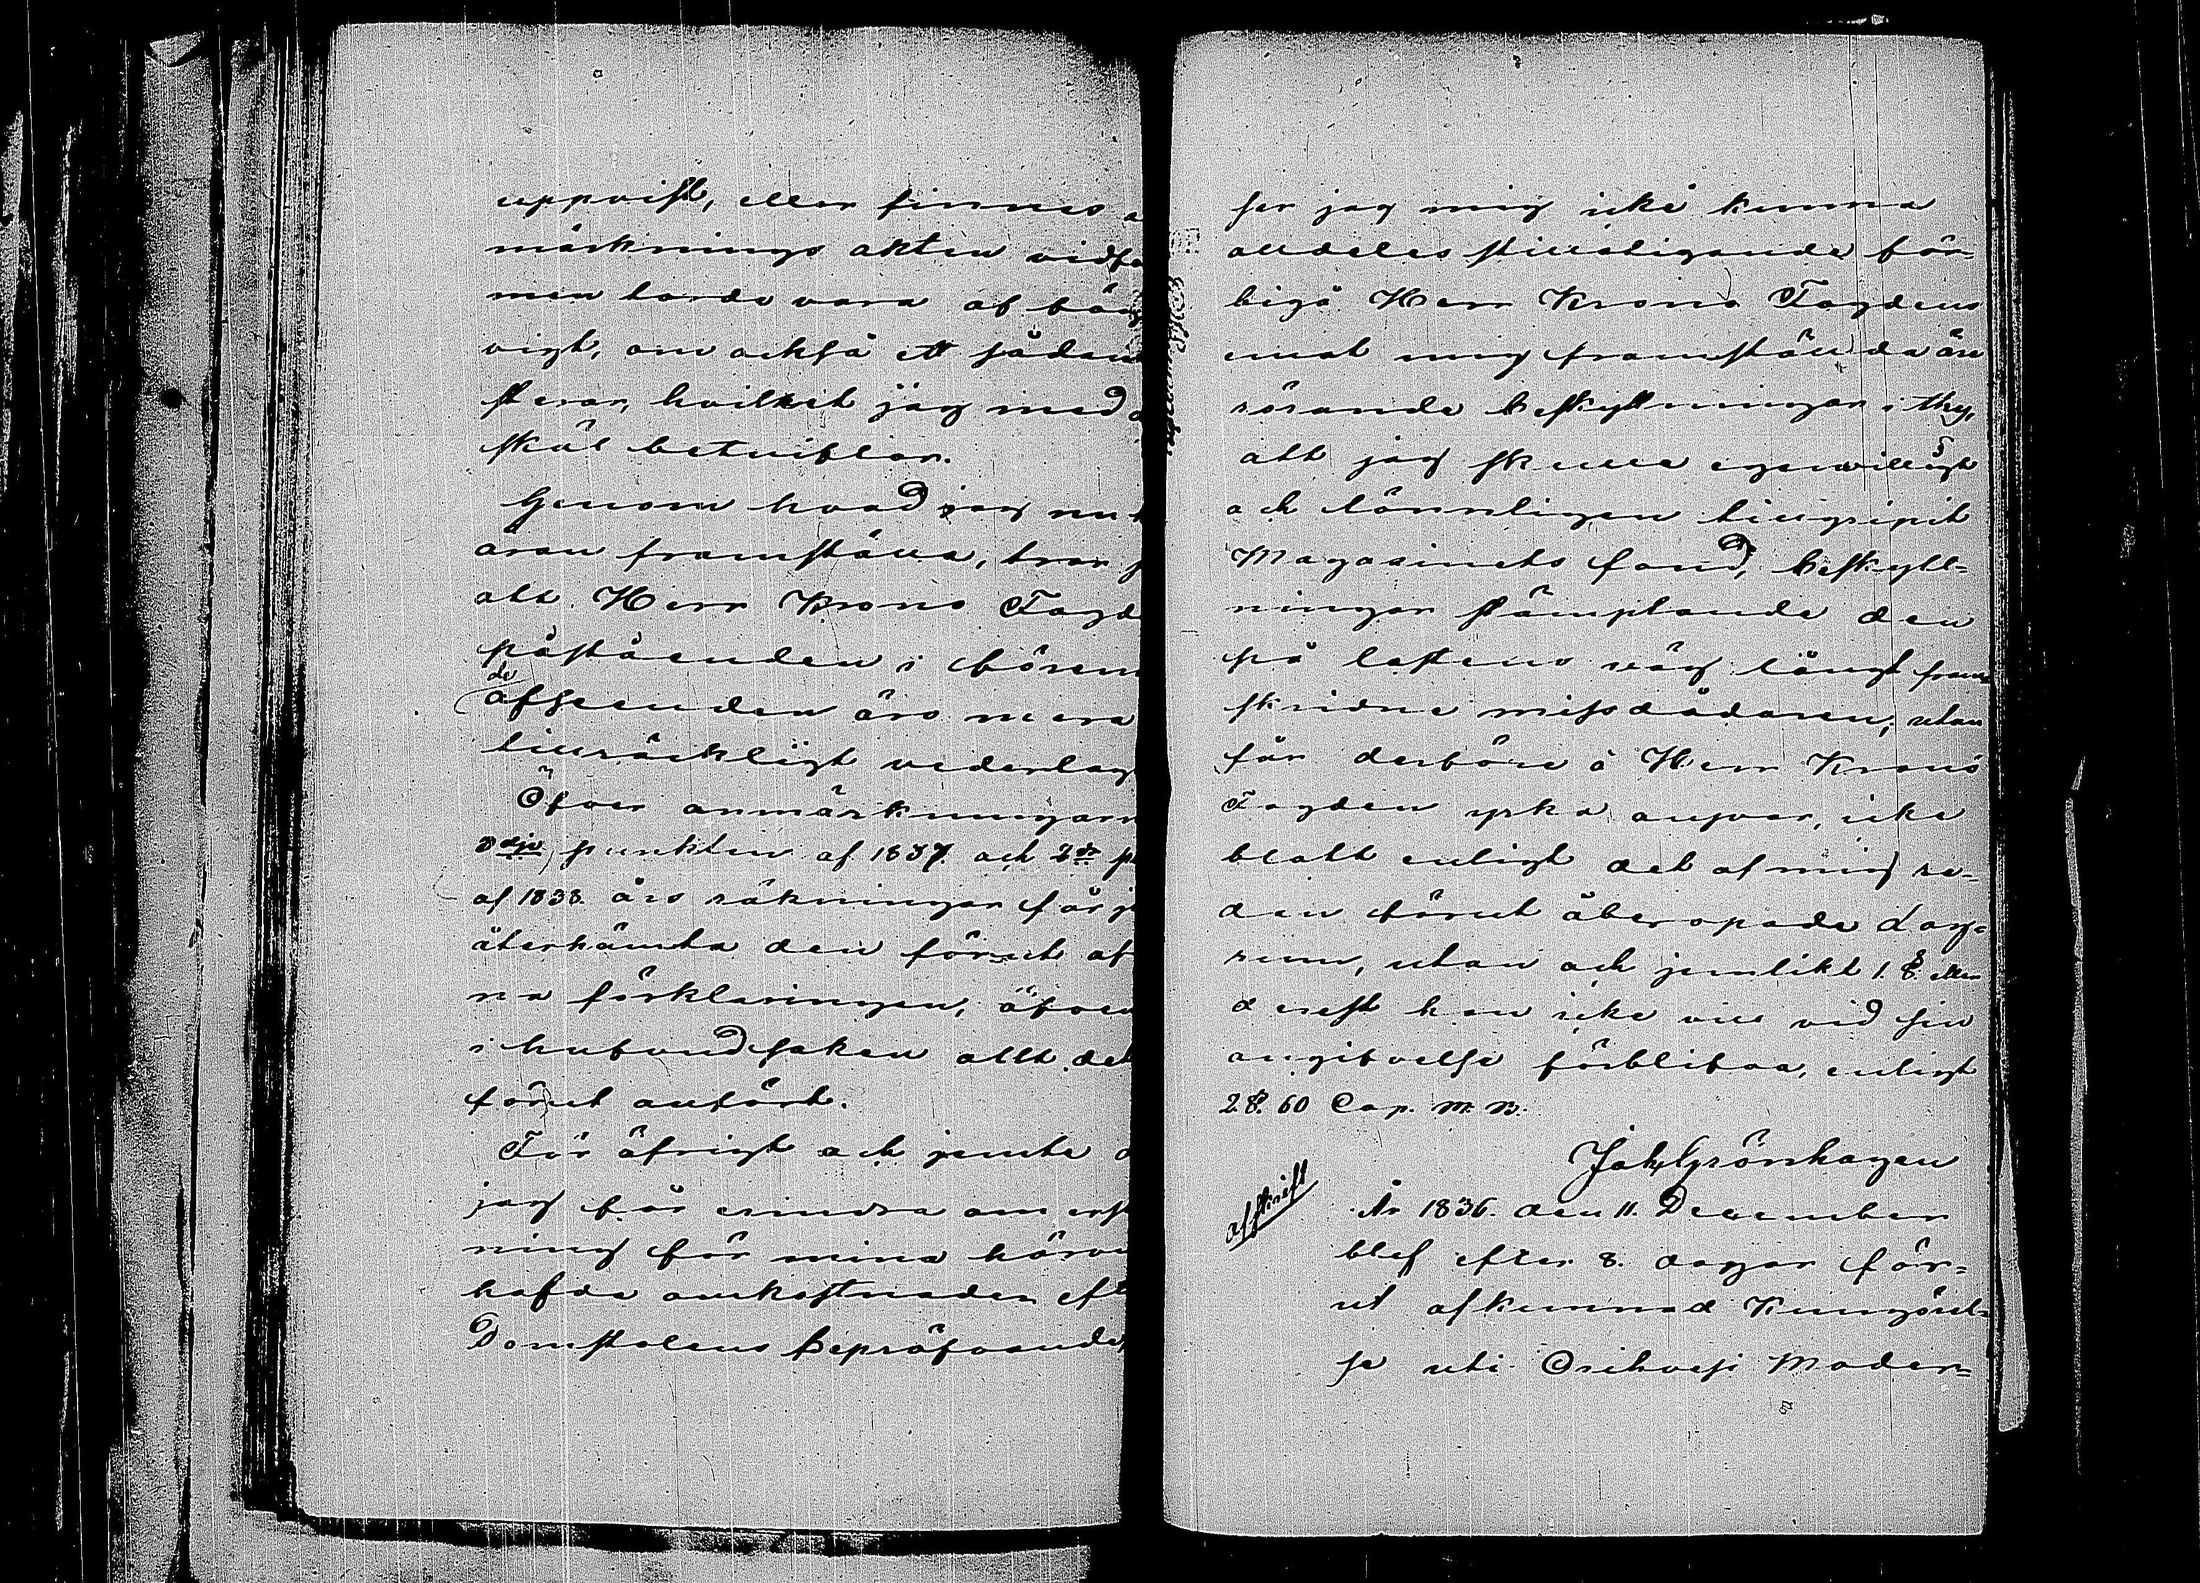 uppvist, eller finnes a
märknings akten vidfo
men torde vara af bö
vigt, om också ett sådan
sterar, hvilket jag med
skäl betviflar.
Genom hvad jag nu h
äran framställa, tror j
att Herr Krono Fogd
påståenden i förem
de
afseenden äro mera
tillräckligt vederlag
Öfver anmärkningarn
3dje punkten af 1837. och 2dr p
af 1838. års räkningar får j
återhämta den förut af
na förklaringen, äfven
i hufvudsaken allt det
förut anfört.
För öfrigt och jemte d
jag får erindra om ersä
ning för mina härvi
hafde omkostnader eft
Domstolens bepröfvande,
ser jag mig icke kunna
alldeles stillatigande för-
bigå Herr Krono Fogdens
emot mig framställda äre
rörande beskyllningar i thy,
att jag skulle egenvilligt
och lönnligen tillgripit
Magasinets fond, beskyll-
ningar stämplande den
på lastens väg längst fram
skridne missdådaren, utan
får derföre å Herr Krono
Fogden yrka ansvar, icke
blott enligt det af mig re-
dan förut åberopade Lag-
rum, utan och jemlikt 1. §. eller
derest han icke vill vid sin
angifvelse förblifva, enligt
2 §. 60 Cap. M. B.
Joh Grönhagen
Afskrift
År 1836. den 11. December
blef efter 8. dagar för-
ut afkunnad Kungörel-
se uti Orihvesi Moder-